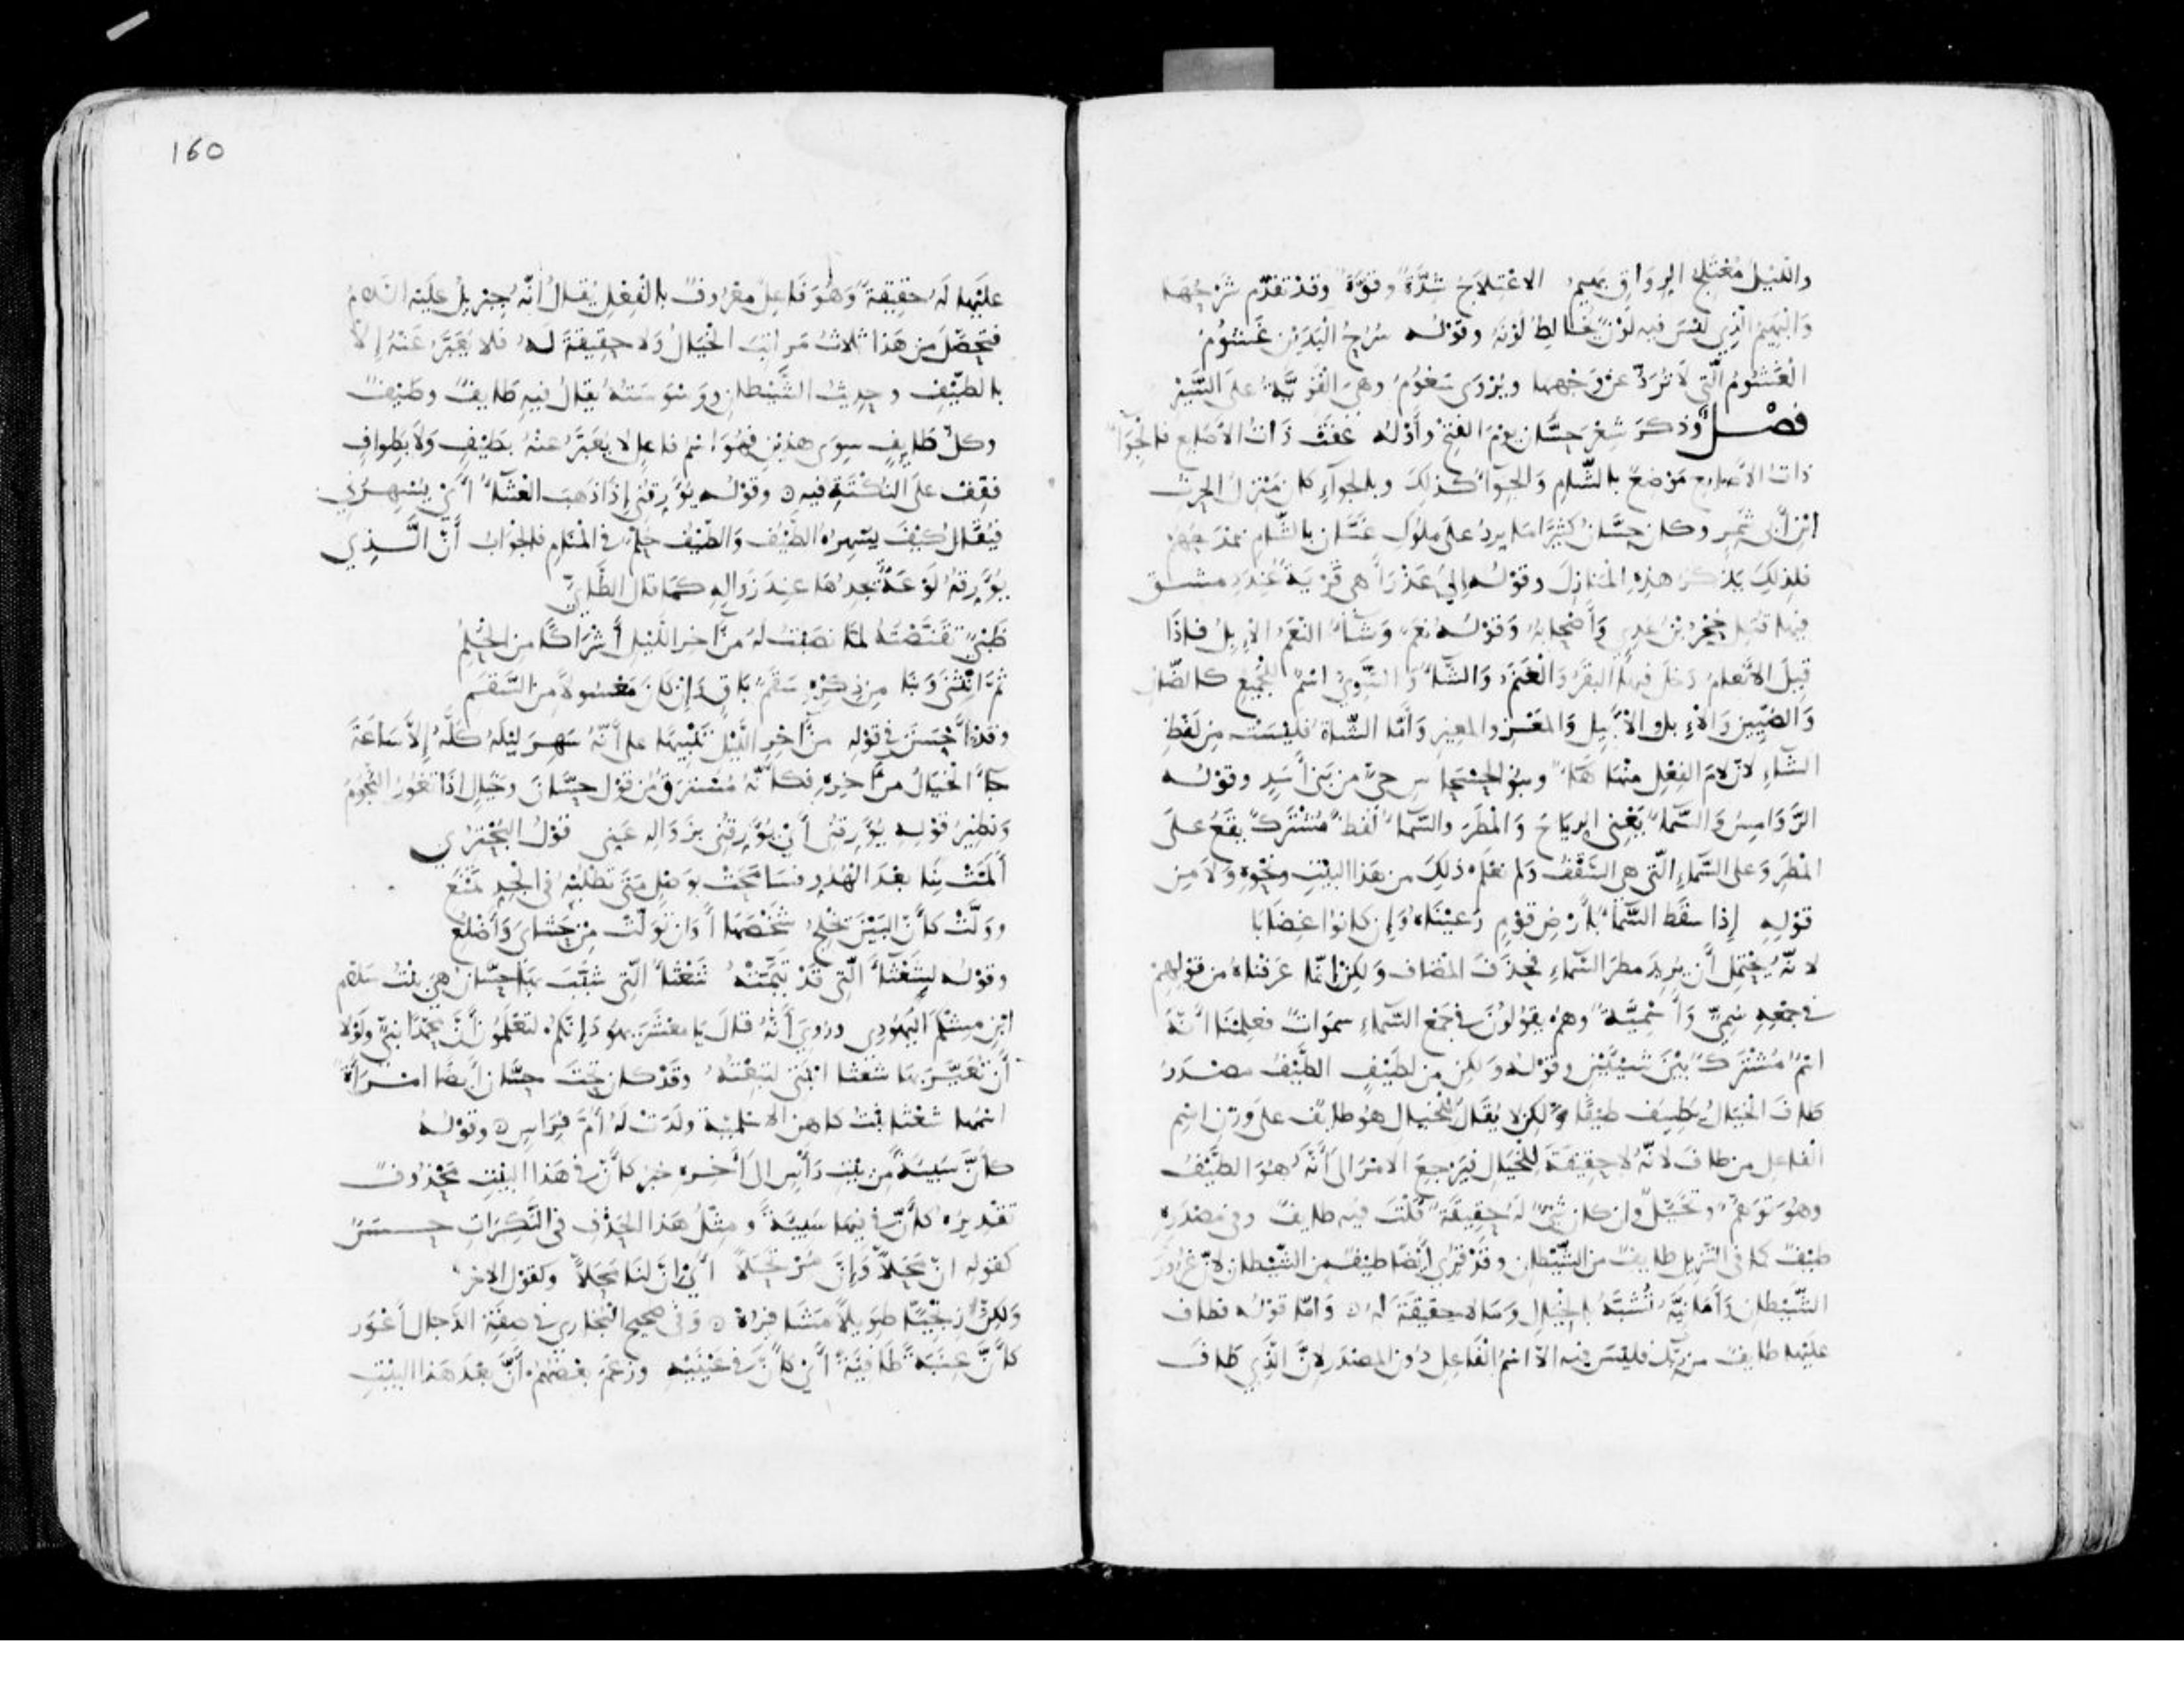 والليل معتلج الرواق بهيم الاعتلاج شدة وقوة وقد تقدم شرحها
والبهيم الذي ليس فيه لون يخالط لونه وقوله سرح اليدين غشوم
الغشوم التي لا ترد عن وجهها ويروى سعوم وهي القوية على السير
فصل وذكر شعر حسان يوم الفتح وأوله عفت ذات الأصابع فالجواء
ذات الأصابع موضع بالشام والجواء كذلك وبالجواء كان منزل الحرث
ابن أبي شمر وكان حسان كثيرا ما يرد على ملوك غسان بالشام يمدحهم
فلذلك يذكر هذه المنازل وقوله إلى عذراء هي قرية عند دمشق
فيها قتل حجر بن عدي وأصحابه وقوله نعم وشاء النعم الإبل فإذا
قيل الأنعام دخل فيها البقر والغنم والشاء والشوي اسم للجميع كالضأن
والضئين والإبل والأبيل والمعز والمعيز وأما الشاة فليست من لفظ
الشاء لأن لام الفعل منها هاء وبنو الحسحاس حي من بني أسد وقوله
الروامس والسماء يعني الرياح والمطر والسماء لفظ مشترك يقع على
المطر وعلى السماء التي هي السقف ولم نعلم ذلك من هذا البيت ونحوه ولا من
قوله إذا سقط السماء بأرض قوم رعيناه وإن كانوا غضابا
لأنه يحتمل أن يريد مطر السماء فحذف المضاف ولكن إنما عرفناه من قولهم
في جمعه سمي وأسمية وهم يقولون في جمع السماء سموات فعلمنا أنه
اسم مشترك بين شيئين وقوله ولكن من لطيف الطيف مصدر
طاف الخيال يطيف طيفا ولكن لا يقال للخيال هو طايف على وزن اسم
الفاعل من طاف لأنه لا حقيقة للخيال فيرجع الأمر إلى أنه هو الطيف
وهو توهم وتخيل وإن كان شيء له حقيقة قلت فيه طايف وفي مصدره
طيف كما في التنزيل طايف من الشيطان وقد قرئ أيضا طيف من الشيطان لأن غرور
الشيطان وأمانيه تشبه بالخيال وما لا حقيقة له وأما قوله فطاف
عليها طايف من ربك فليس فيه إلا اسم الفاعل دون المصدر لأن الذي طاف
160
عليها له حقيقة وهو فاعل معروف بالفعل يقال أنه جبريل عليه السلم
فتحصل من هذا ثلاث مراتب الخيال ولا حقيقة له فلا يعبر عنه إلا
بالطيف وحديث الشيطان ووسوسته يقال فيه طايف وطيف
وكل طايف سوى هذين فهو اسم فاعل لا يعبر عنه بطيف ولا بطواف
فقف على النكتة فيه وقوله يؤرقني إذا ذهب العشاء أي يسهرني
فيقال كيف يسهره الطيف والطيف حلم في المنام فالجواب أن الذي
يؤرقه لوعة يجدها عند زواله كما قال الطائي
ظبي تقنصته لما نصبت له من آخر الليل أشراكا من الحلم
ثم انثنى وبنا من ذكره سقم باق وإن كان معسولا من السقم
وقد أحسن في قوله من آخر الليل تنبيها على أنه سهر ليله كله إلا ساعة
جاء الخيال من آخره فكأنه مسترق من قول حسان وخيال إذا تغور النجوم
ونظير قوله يؤرقني أي يؤرقني بزواله عني قول البحتري
ألمت بنا بعد الهدو فسامحت بوصل متى تطلبه في الجد تمنع
وولت كأن البين يخلج شخصها أوان تولت من حشاي وأضلعي
وقوله لشعثاء التي قد تيمته شعثاء التي شبب بها حسان هي بنت سلام
ابن مشكم اليهودي وروي أنه قال يا معشر يهود إنكم لتعلمون أن محمدا نبي ولولا
أن تعير بها شعثا ابنتي لتبعته وقد كان تحت حسان أيضا امرأة
اسمها شعثا بنت كاهن الاسلمية ولدت له أم فراس وقوله
كأن سبيئة من بيت رأس إلى آخره خبر كأن في هذا البيت محذوف
تقديره كأن في فيها سبيئة ومثل هذا الحذف في النكرات حسن
كقوله إن محلا وإن مرتحلا أي إن لنا محلا وكقول الآخر
ولكن زنجيا طويلا مشافره وفي صحيح البخاري في صفة الدجال أعور
كأن عنبة طافية أي كأن في عينيه وزعم بعضهم أن بعد هذا البيت